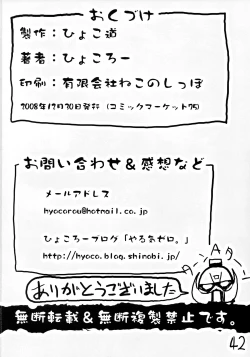 おくづけ
製作：ひょこ道
著者：ひょころー
印刷：有限会社ねこのしっぽ
2008年12月30日発行 (コミックマーケット75)
お問い合わせ&感想など
メールアドレス
hyocorou@hotmail.co.jp
ひょころーブログ「やる気ゼロ。」
http://hyoco.blog.shinobi.jp/
ありがとうございました
無断転載&無断複製禁止です。
42